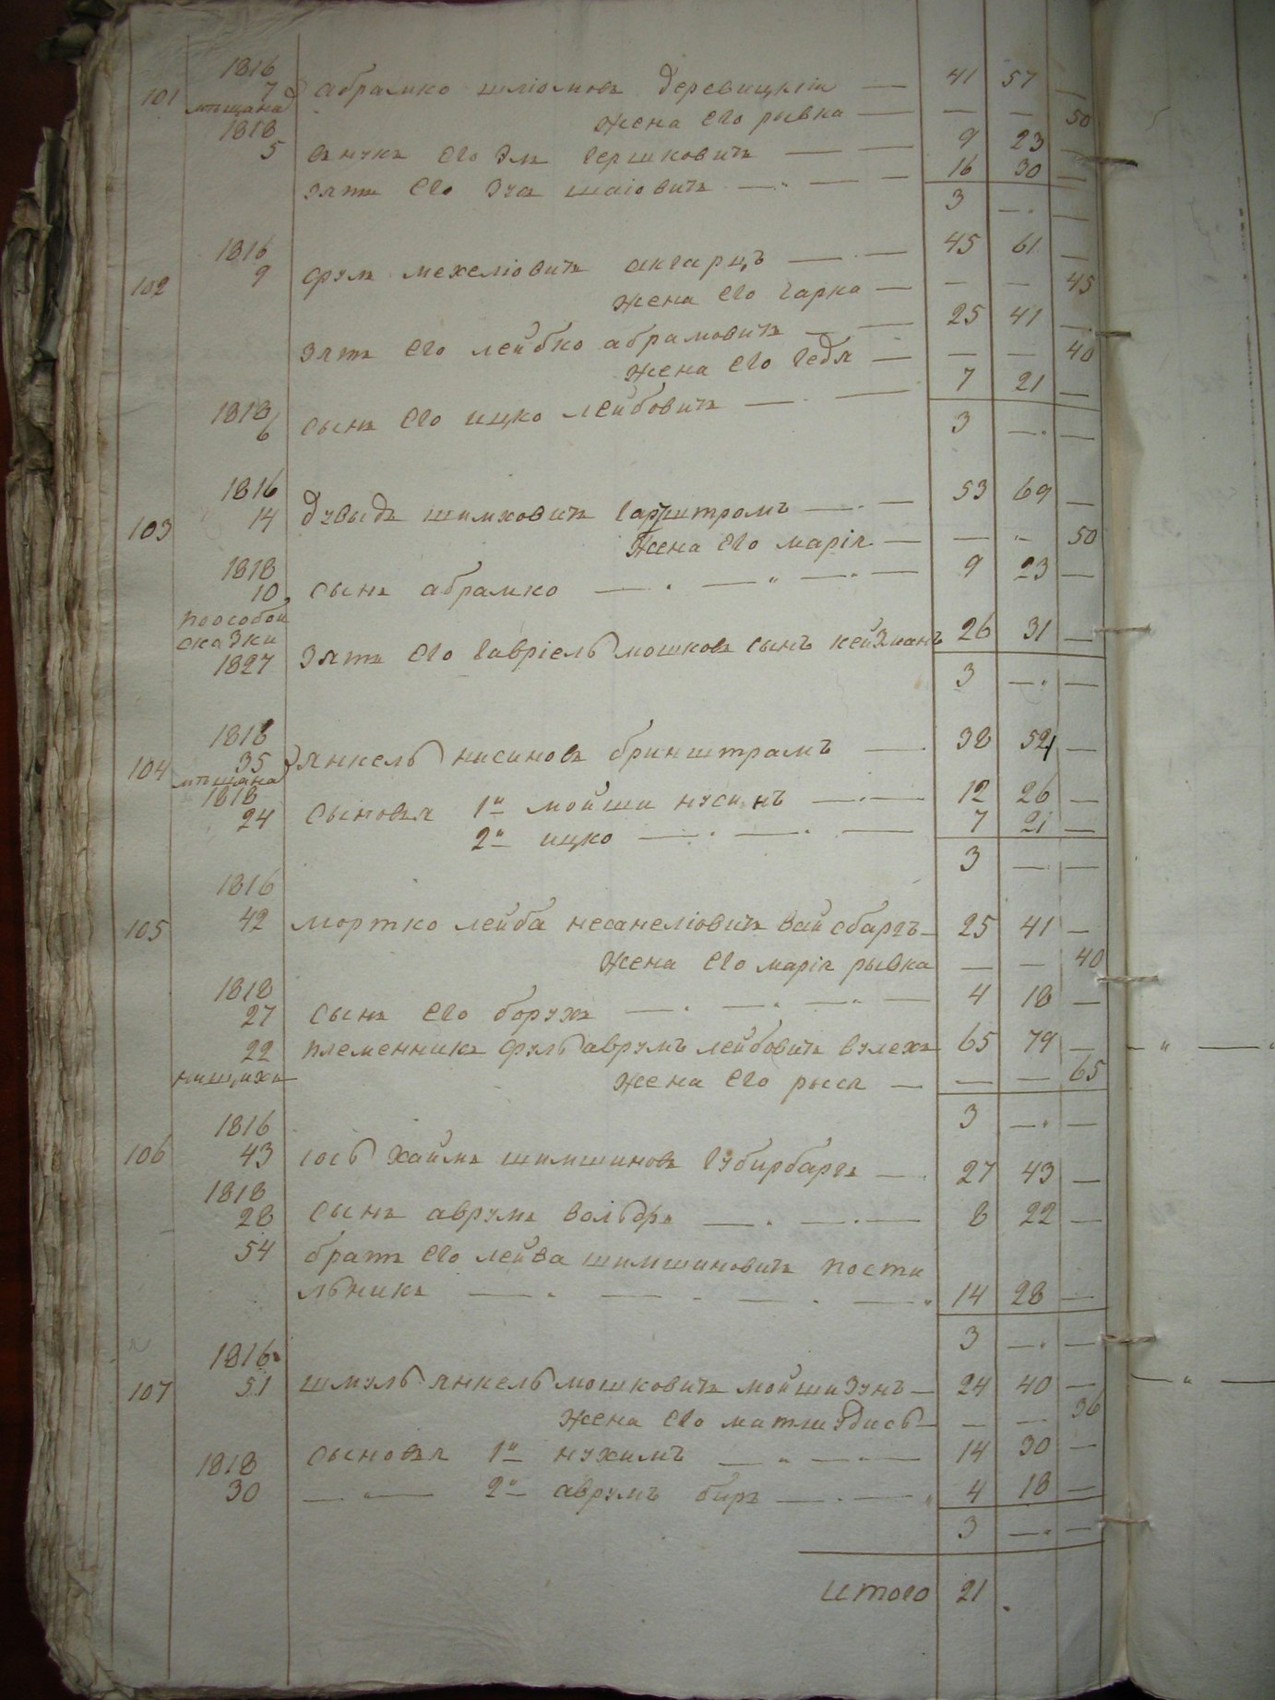 1816
101 7 абрамко шліомовъ деревицкій — 41 57 —
мѣщана
жена его рывка — — — 50
1818
5 внукъ его Эль гершковичъ — — 9 23 —
зять его Зуся шаіовичъ — „ — — 16 30 —
3 — . —
1816 45 61 —
102 9 фулъ мехеліовичъ ангарцъ — . —
жена его чарна — — — 45
зять его лейбко абрамовичъ — — 25 41 —
жена его гедя — — — 40
1818 7 21 —
6 сынъ его ицко лейбовичъ — . —
3 — . —
1816 53 69 —
103 14 дувыдъ шимховичъ — . —
жена его маріа — — „ 50
1818
10 сынъ абрамко — . — „ — . — 9 23 —
по особой
сказки
1827 зять его гавріель мошковъ сынъ кейзманъ 26 31 —
3 — . —
1818
104 35 янкель нисиновъ бринштрамъ — 38 52 —
мѣщана
1818
24 сыновья 1й мойши нусинъ — . — 12 26 —
2й ицко — . — . — 7 21 —
3 — . —
1816
105 42 мортко лейба несанеліовичъ вайсбаргъ — 25 41 —
жена его маріа рывка — — 40
1818
27 сынъ его борухъ — . — „ — „ — 4 18 —
22 племенникъ фуль аврумъ лейбовичъ 65 79 —
жена его рыся — — — 65
3 — . —
1816
106 43 іось хаимъ шимшиновъ губирбаргъ — . 27 43 —
1818
28 сынъ аврумъ вольфъ — . — . — 8 22 —
54 братъ его лейба шимшиновичъ пости
льникъ — . — - — . — „ 14 28 —
3 — . —
1816
107 51 шмуль янкель мошковичъ мойшизунъ — 24 40 —
жена его — — — 36
сыновья 1й нухимъ — „ — . — 14 30 —
1818
30 — „ — 2й аврумъ биръ — . — „ 4 18 —
3 — . —
итого 21 .